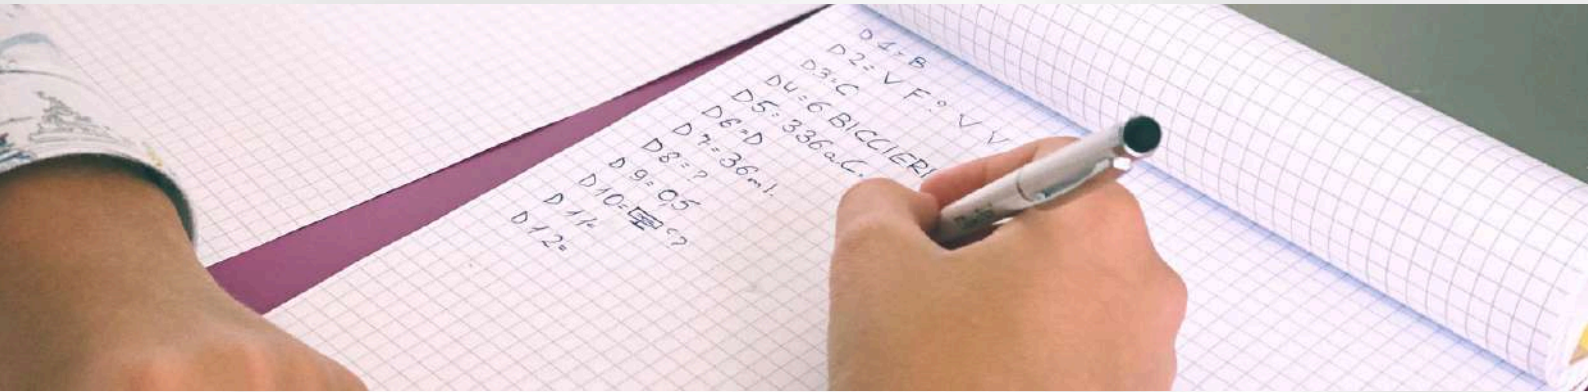 D1=B
D2= V F ? V V
D3=C
D4=6 BICCIERI
D5=336a.C.
D6=D
D7=36ml.
D8=?
D9=0,5
D10= ?
D11=
D12=